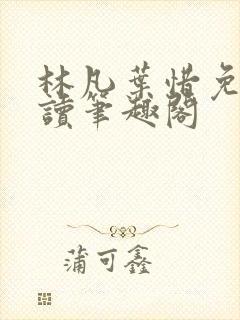 林凡葉惜免
讀筆趣閣
蒲可鑫